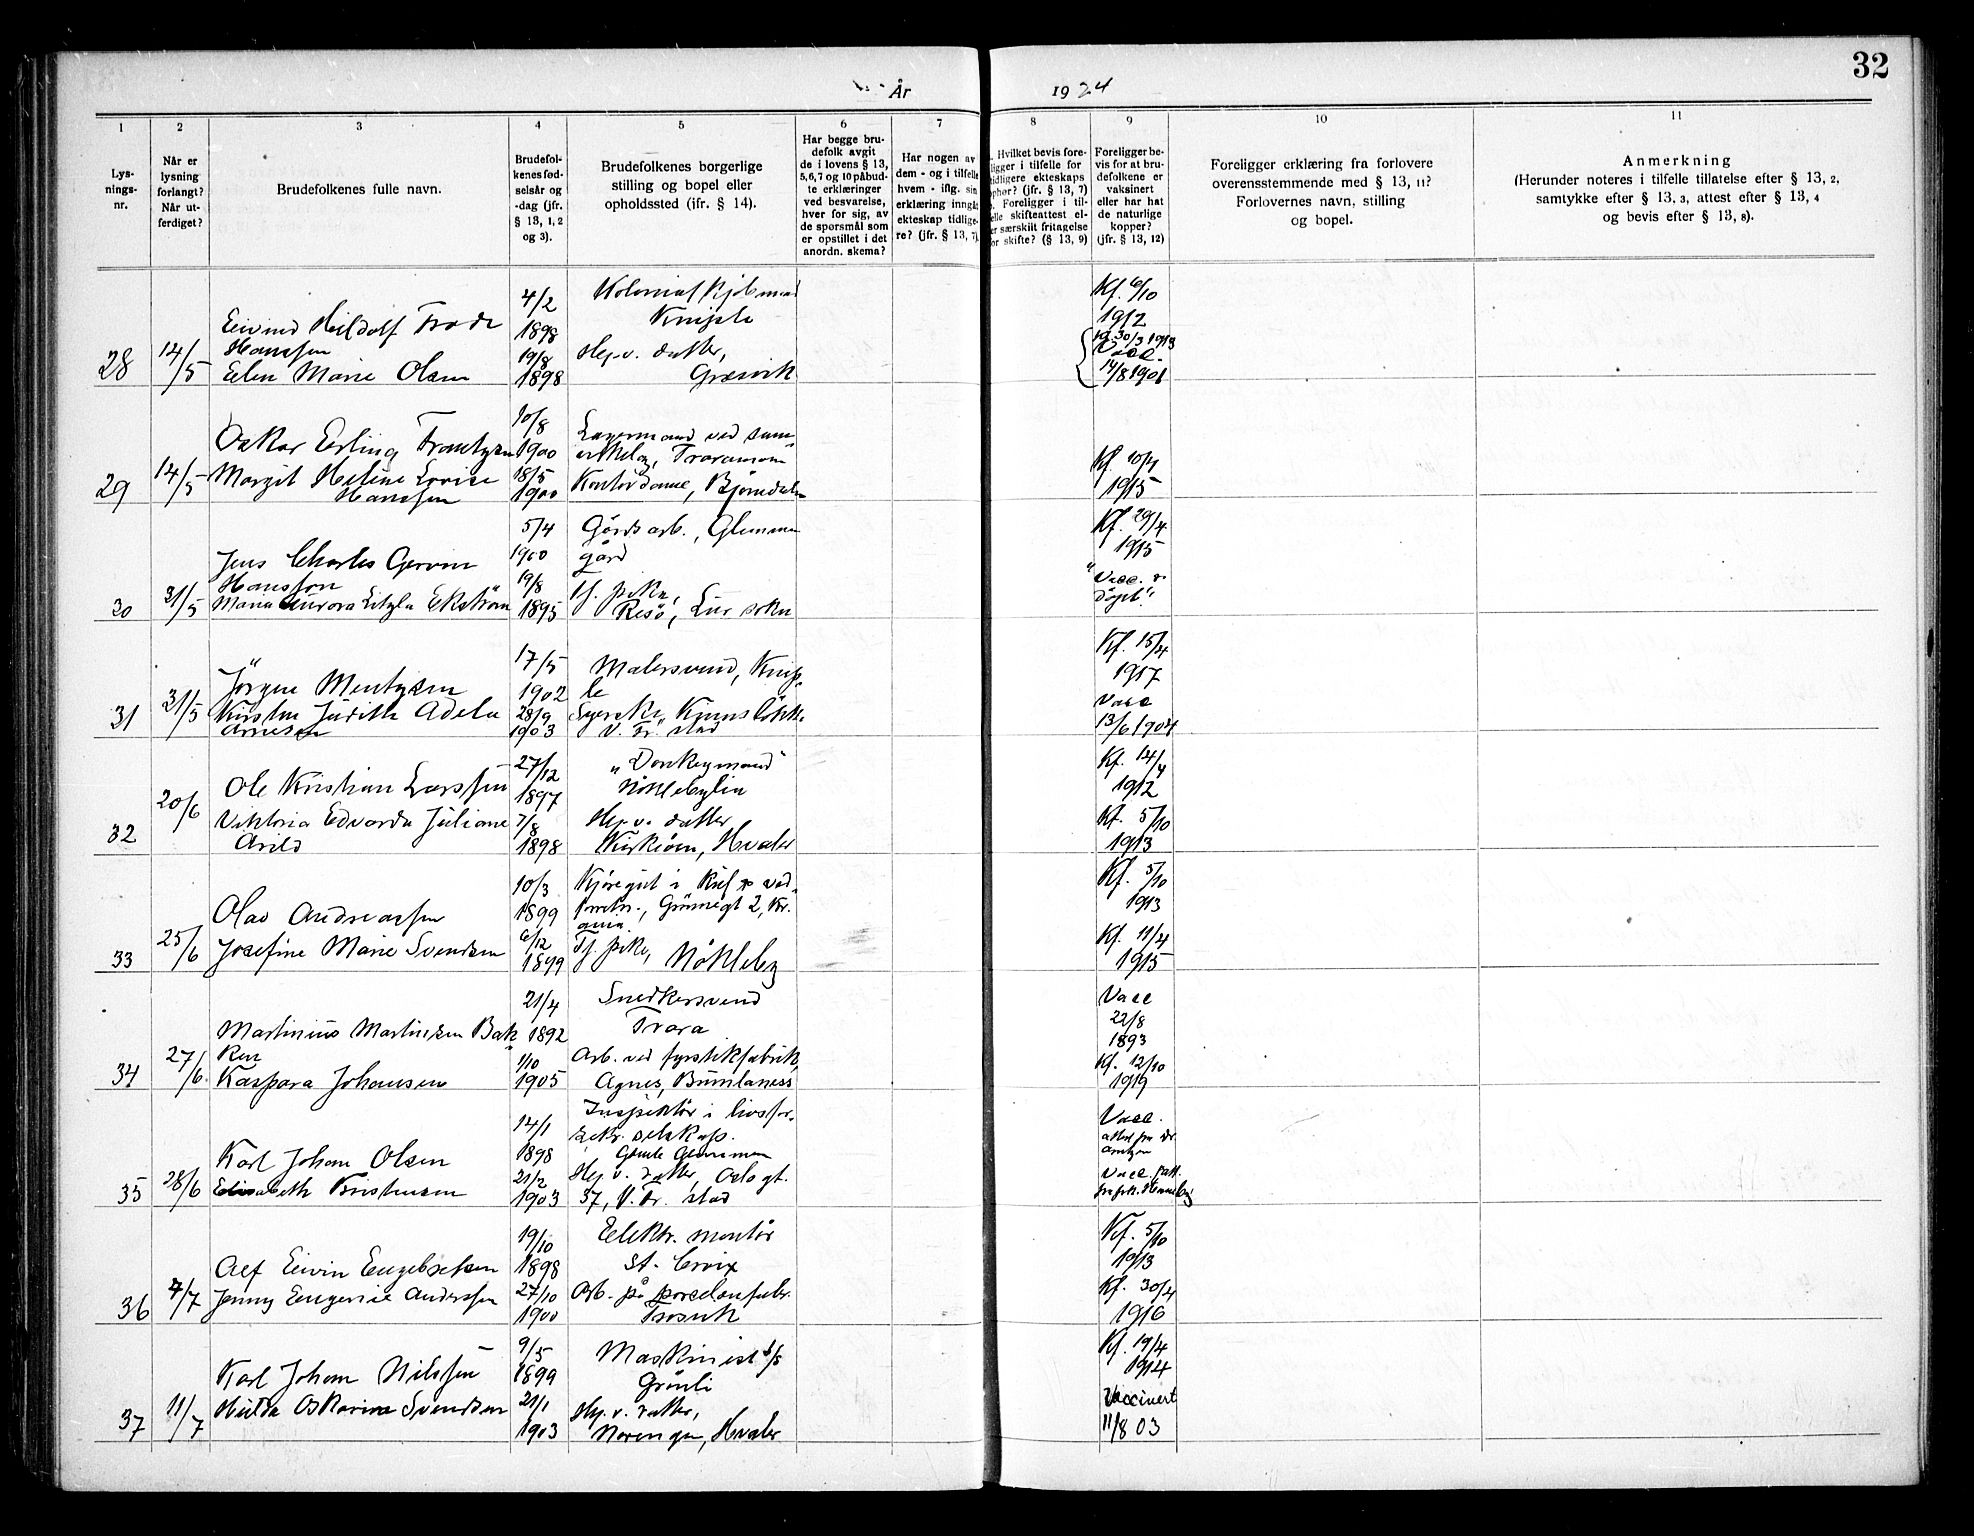 32
År 1924
1
2
3
4
5
6
7
8
9
10
11
Lys-
nings-
nr.
Når er
lysning
forlangt?
Når ut-
ferdiget?
Brudefolkenes fulle navn.
Brudefol-
kenes fød-
selsår og
-dag (jfr.
§ 13, 1, 2
og 3).
Brudefolkenes borgerlige
stilling og bopel eller
opholdssted (ifr. § 14).
Har begge bru-
defolk avgit
de i lovens § 13,
5,6,7 og 10 påbud-
te erklæringer
ved besvarelse,
hver for sig, av
de spørsmål som
er opstillet i det
anordn. skema?
Har nogen av
dem - og i tilfelle
hvem - iflg. sin
erklæring inngåt
ekteskap tidlige-
re? (jfr. § 13, 7).
Hvilket bevis fore-
ligger i tilfelle for
tidligere ekteskaps
ophør? (jfr. § 13, 7)
Foreligger i til-
elle skifteattest el-
er særskilt fritagelse
or skifte? (§ 13, 9)
Foreligger be-
vis for at bru-
defolkene er
vaksinert
eller har hat
de naturlige
kopper?
(jfr. § 13, 12)
Foreligger erklæring fra forlovere
overensstemmende med § 13, 11?
Forlovernes navn, stilling
og bopel.
Anmerkning
(Herunder noteres i tilfelle tillatelse efter § 13, 2,
samtykke efter § 13, 3, attest efter § 13, 4
og bevis efter § 13, 8).
28 14/5
Eivind Hildolf Frode
Hanssen
Elen Marie Olsen
4/2
1898
19/8
1898
Kolonialkjøbmand
Kniple
Hj.v. datter,
Græsvik
Kf. 6/10
1912
30/3 1913
Vacc.
14/8 1901
29 14/5
Oskar Erling Frantzen
Margit Helene Lovise
Hanssen
10/8
1900
18/5
1900
Lagermand ved sam-
virkelag, Traramoen
Kontordame, Bjørndalen
Kf. 10/4
1915
30 31/5
Jens Charles Gervin
Hansson
Maria Aurora Ekström
5/4
1900
19/8
1895
Gårdsarb., Glemmen
gård
Tj. pike,
Resö, Lur sokn
Kf. 29/4
1915
"Vacc. o
döpt"
31 31/5
Jörgen Mentzen
Kirsten Judith Adela
Arnesen
17/5
1902
28/9
1903
Malersvend, Knip-
le
Syerske,
V. Fr. stad
Kf. 15/4
1917
Vacc
13/6 1904
32 20/6
Ole Kristian Larssen
Viktoria Edvarda Juliane
Arild
27/12
1897
7/8
1898
"Donkeymand"
Nökleby
Hj.v. datter
Kirköen, Hvaler
Kf. 14/4
1912
Kf. 5/10
1913
33 25/6
Olav Andreassen
Josefine Marie Svendsen
10/3
1899
6/12
1899
Kjøregut i
Grönnegt 2, Kr.
ania.
Tj. pike, Nökleby
Kf. 5/10
1913
Kf. 11/4
1915
34 27/6
Martinius Martinsen Bak
ken
Kaspara Johansen
21/4
1892
1/10
1905
Snedkersvend
Trara
Arb. ved fyrstikfabrik,
Agnes, Brunlanes
Vacc
22/8
1893
Kf. 12/10
1919
35 28/6
Karl Johan Olsen
Elisabeth Kristensen
14/1
1898
21/2
1903
Inspektör i livsfor-
sikr. selskap.
Gamle Glemmen
Hj.v. datter, Oslogt.
37, V. Fr. stad
Vacc.
attest fra dr.
Arntzen
Vacc. att.
36 7/7
Alf Eivin Engebretsen
Jenny Eugenie Anderssen
19/10
1898
27/10
1900
Elektr. montör
St. Croix
Arb. på porcelænfabr.
Trosvik
Kf. 5/10
1913
Kf. 30/4
1916
37 11/7
Karl Johan Nilssen
Hulda Oskarine Svendsen
9/5
1899
21/1
1903
Maskinist s/s
Grönli
Hj.v. datter,
Norengen, Hvaler
Kf. 19/4
1914
Vaccinert
11/8 03